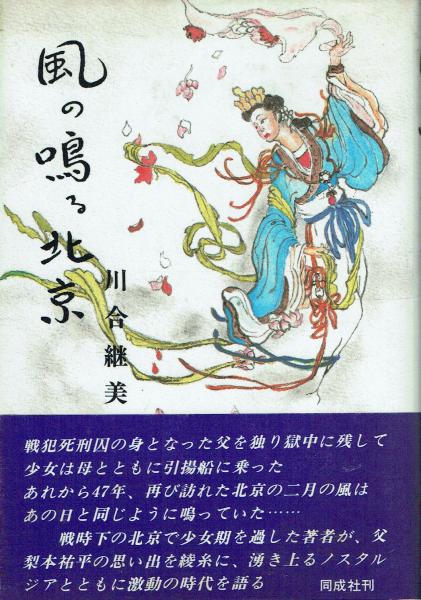 風の鳴る北京
川合継美
戦犯死刑囚の身となった父を独り獄中に残して
少女は母とともに引揚船に乗った
あれから47年、再び訪れた北京の二月の風は
あの日と同じように鳴っていた……
戦時下の北京で少女期を過した著者が、父
梨本祐平の思い出を綾糸に、湧き上るノスタル
ジアとともに激動の時代を語る
同成社刊